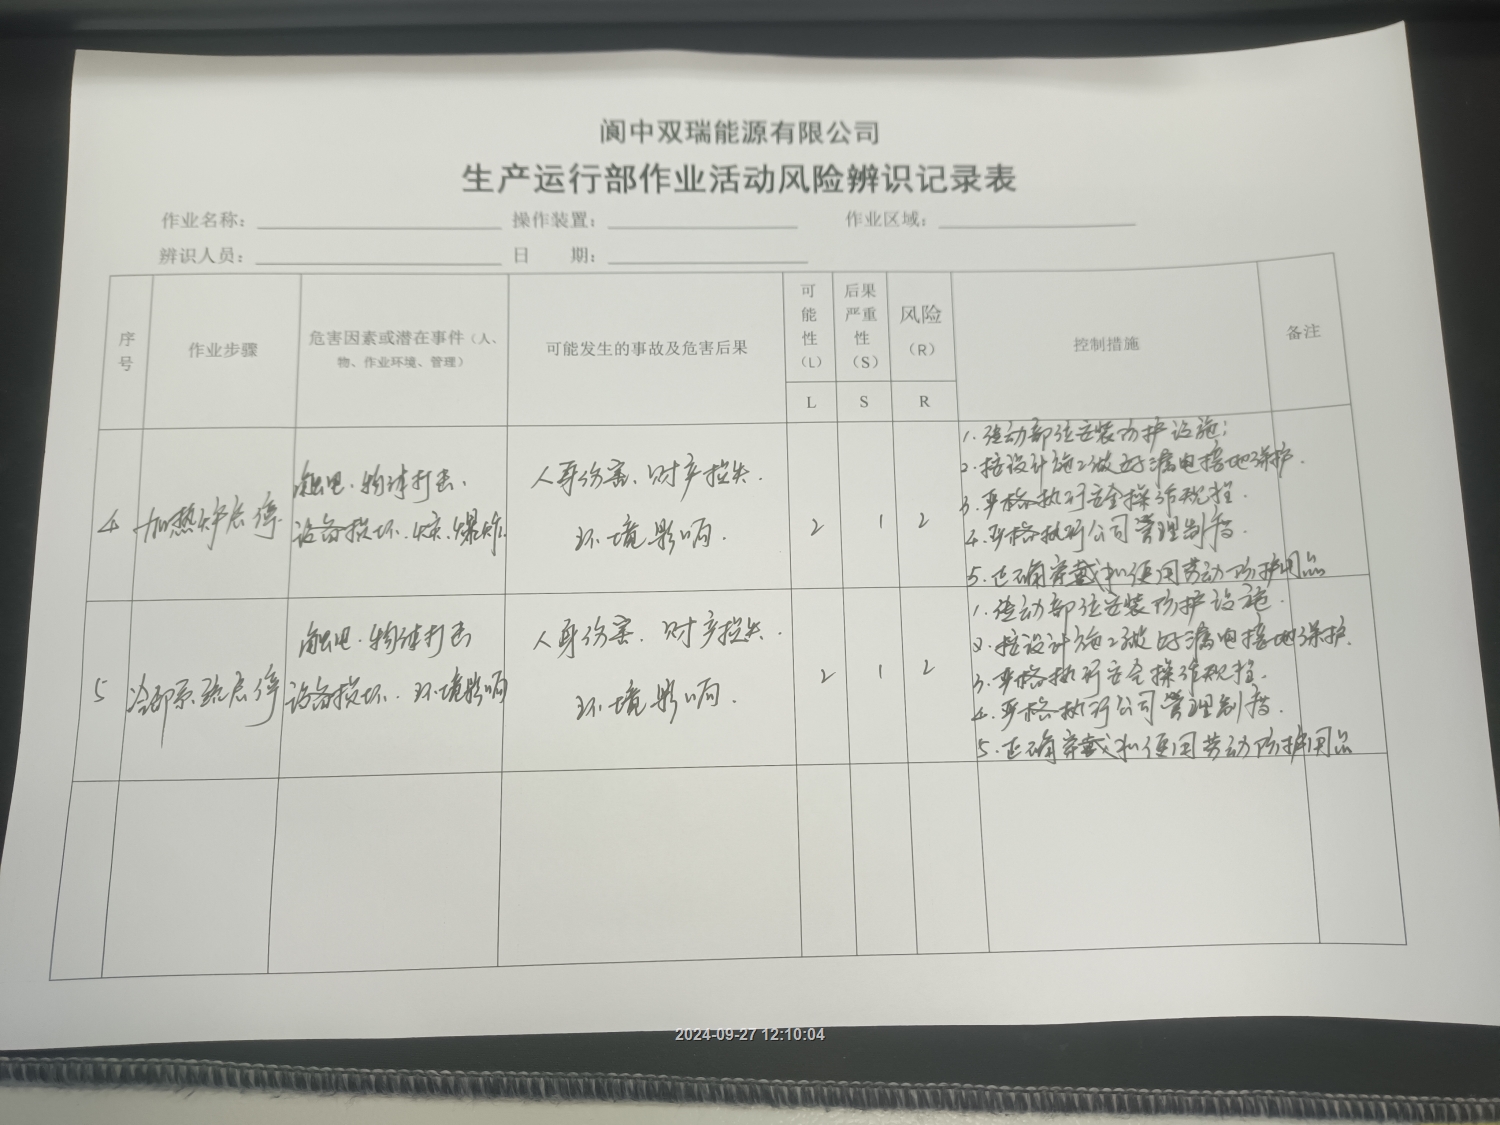 阆中双瑞能源有限公司
生产运行部作业活动风险辨识记录表
作业名称： 操作装置： 作业区域：
辨识人员： 日 期：
序号 作业步骤 危害因素或潜在事件（人、物、作业环境、管理） 可能发生的事故及危害后果 可能性（L） 后果严重性（S） 风险（R） 控制措施 备注
L S R
4 加热炉启停 触电.物体打击.
设备损坏.火灾.爆炸. 人身伤害、财产损失.
环境影响. 2 1 2
1.传动部位安装防护设施;
2.按设计施工做好漏电接地保护.
3.严格执行安全操作规程.
4.严格执行公司管理制度.
5.正确穿戴和使用劳动防护用品
5 冷却系统启停 触电.物体打击
设备损坏.环境影响 人身伤害.财产损失.
环境影响. 2 1 2
1.传动部位安装防护设施.
2.按设计施工做好漏电接地保护.
3.严格执行安全操作规程.
4.严格执行公司管理制度.
5.正确穿戴和使用劳动防护用品
2024-09-27 12:10:04